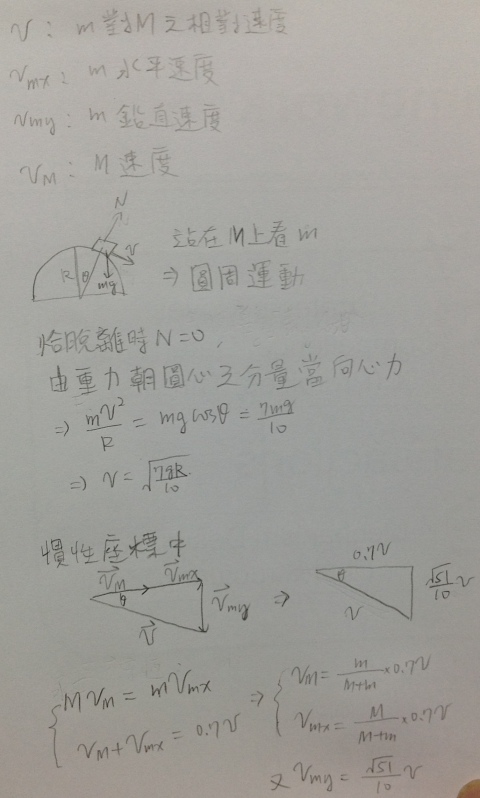 v : m 對 M 之相對速度
vmx : m 水平速度
vmy : m 鉛直速度
vM : M 速度
N
R θ v
mg
站在 M 上看 m
⇒ 圓周運動
恰脫離時 N=0,
由重力朝圓心之分量當向心力
⇒ mv²/R = mg cosθ = 7mg/10
⇒ v = √(7gR/10)
慣性座標中
v⃗M v⃗mx
θ v⃗my
v⃗
⇒
0.7v
θ √51/10 v
v
{ M vM = m vmx
vM + vmx = 0.7v
⇒ { vM = m/(M+m) × 0.7v
vmx = M/(M+m) × 0.7v
又 vmy = √51/10 v